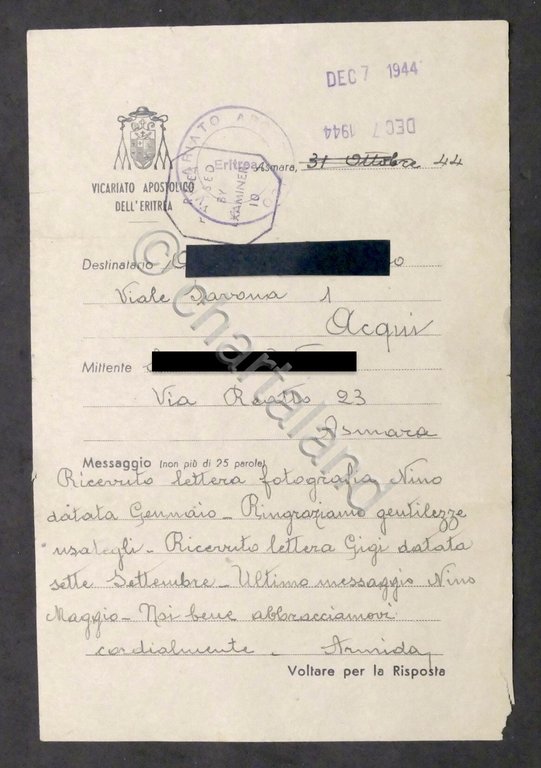 DEC 7 1944
DEC 7 1944
VICARIATO APO
Eritrea
PASSED
BY
EXAMINER
10
VICARIATO APOSTOLICO
DELL'ERITREA
Asmara, 31 Ottobre 44
Destinatario
Viale Savona 1
Acqui
Mittente
Via 23
Asmara
Messaggio (non più di 25 parole)
Ricevuto lettera fotografia Nino
datata Gennaio - Ringraziamo gentilezze
usategli - Ricevuto lettera Gigi datata
sette Settembre - Ultimo messaggio Nino
Maggio - Noi bene abbracciamovi
cordialmente - Armida
Voltare per la Risposta
© chartaland